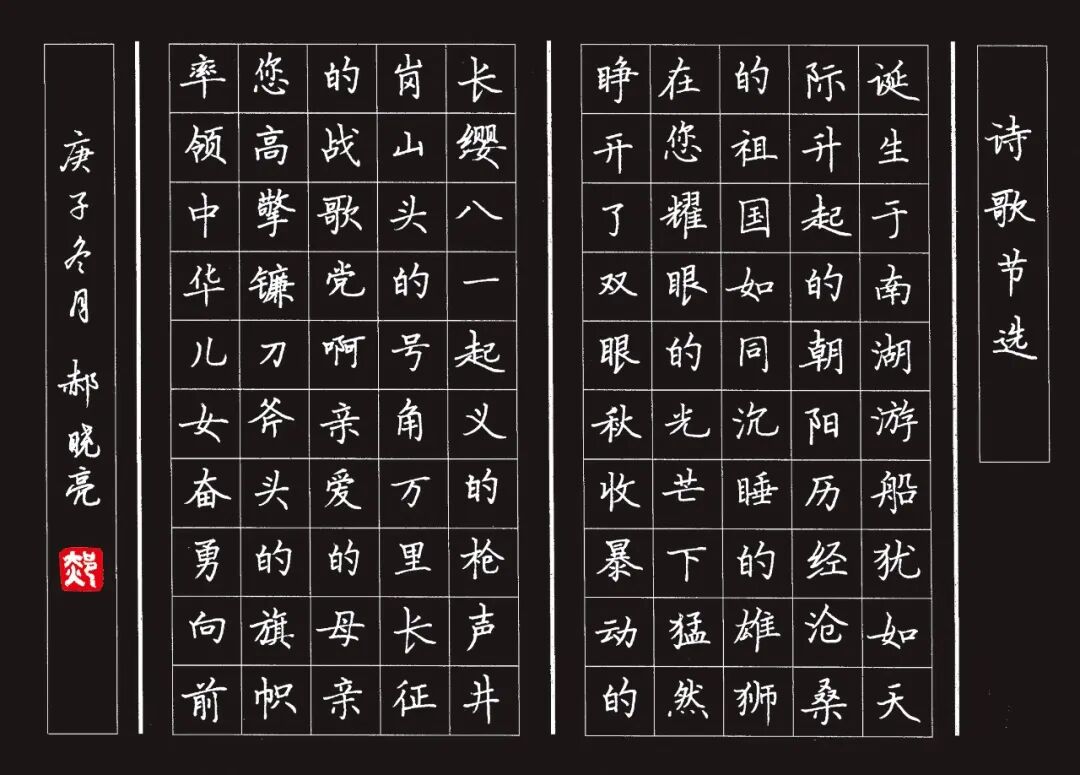 诗歌节选
诞生于南湖游船犹如天
际升起的朝阳历经沧桑
的祖国如同沉睡的雄狮
在您耀眼的光芒下猛然
睁开了双眼秋收暴动的
长缨八一起义的枪声井
岗山头的号角万里长征
的战歌党啊亲爱的母亲
您高擎镰刀斧头的旗帜
率领中华儿女奋勇向前
庚子冬月 郝晓亮